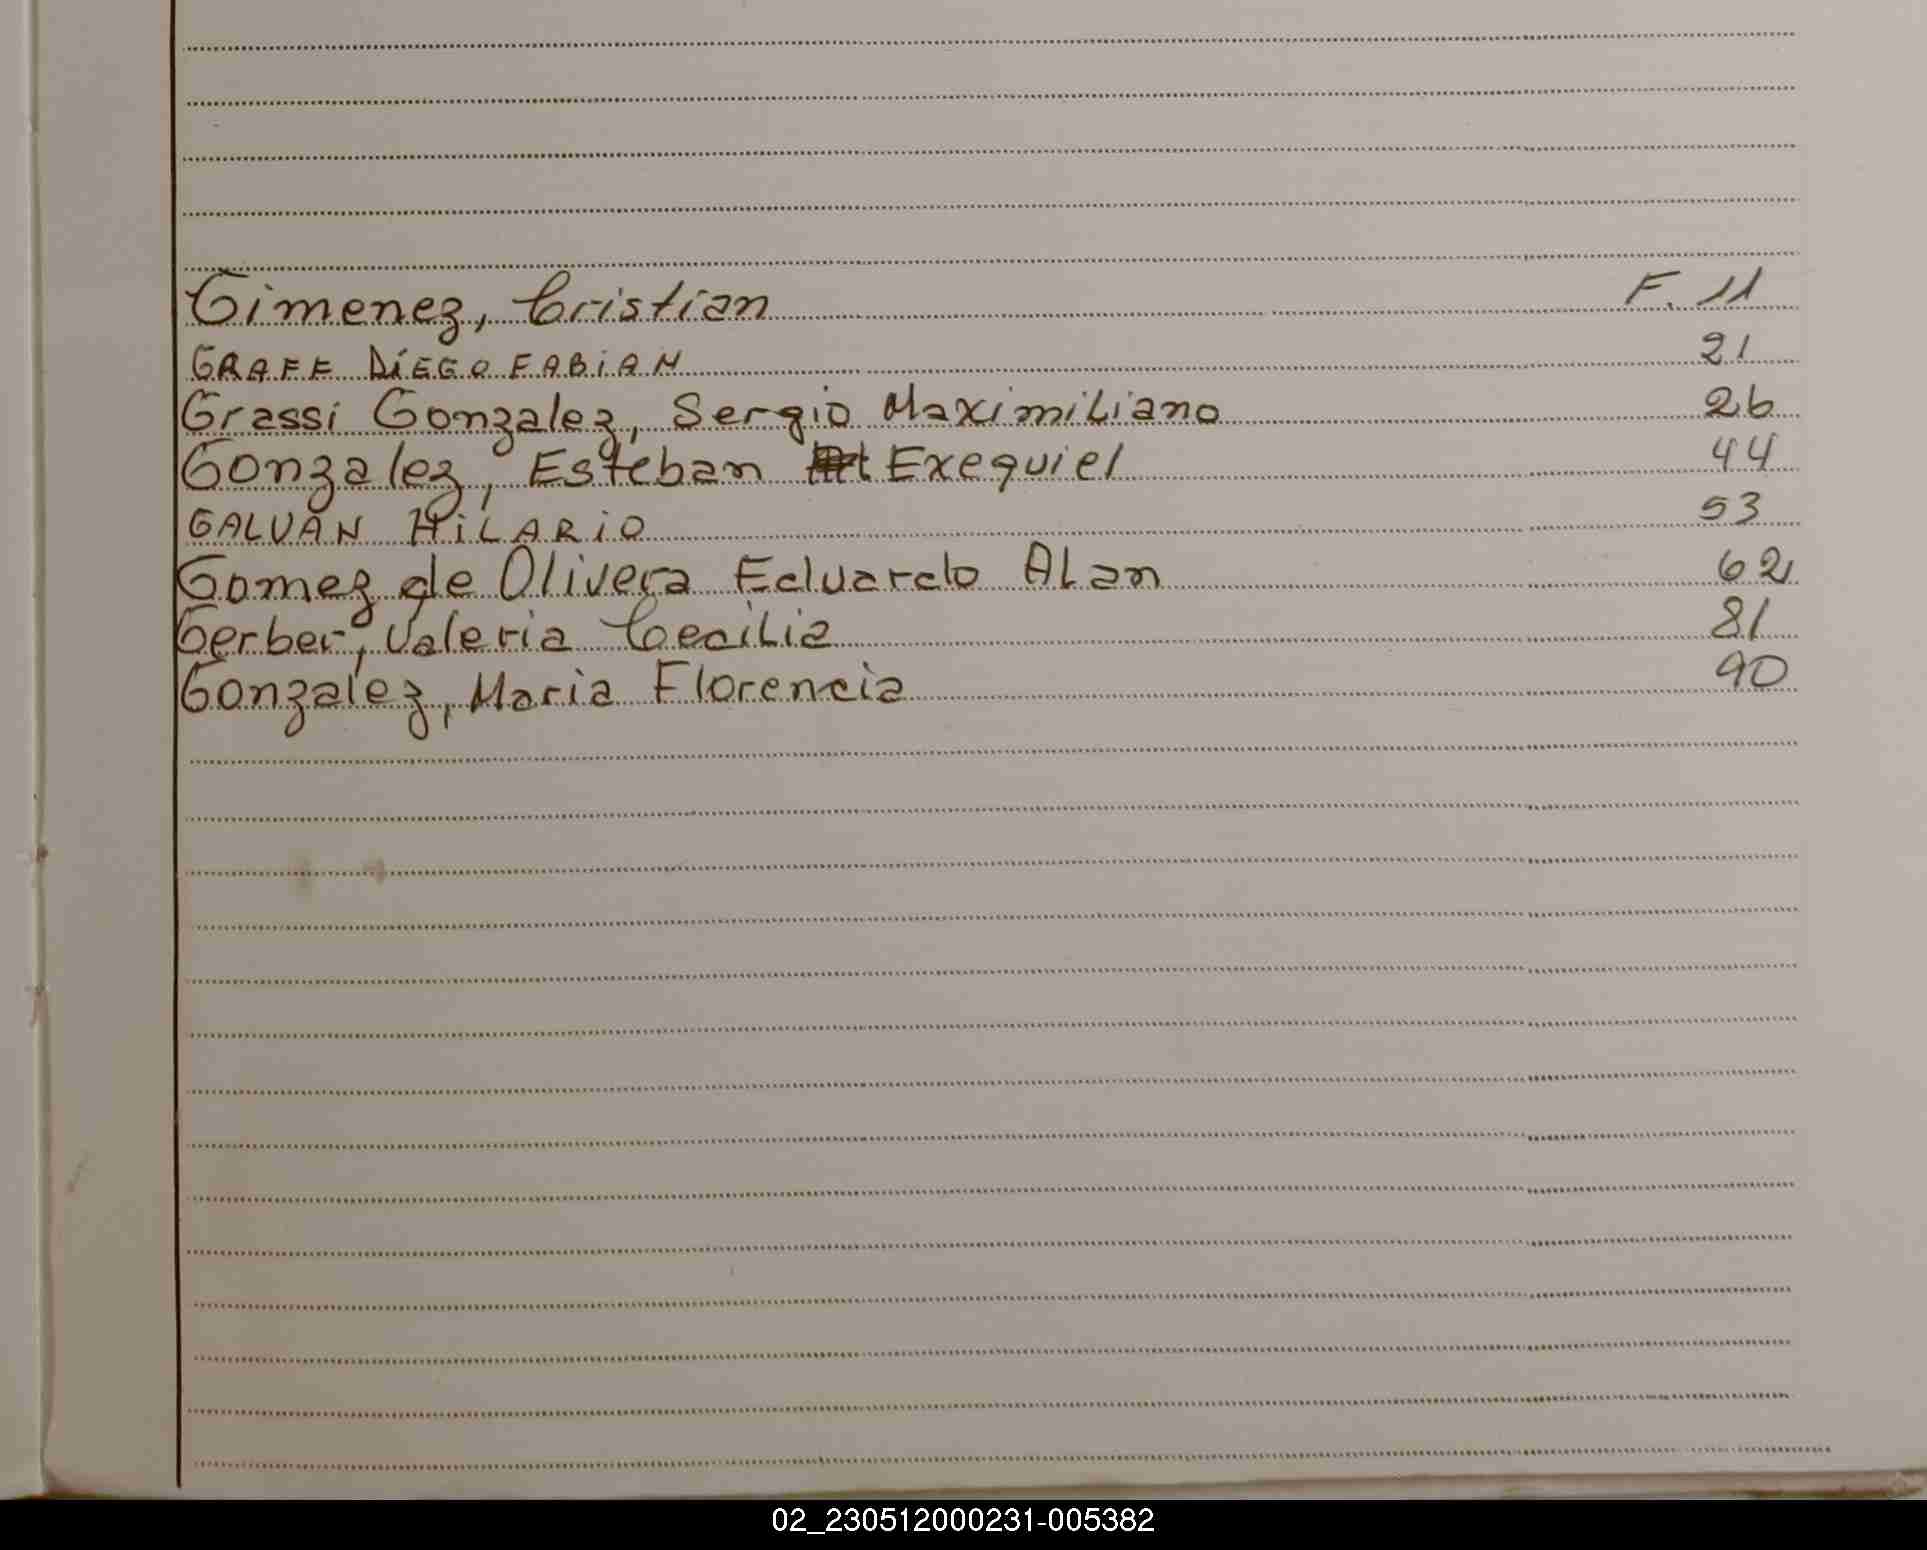 Gimenez, Cristian F. 11
GRAFF DiEGO FABiAN 21
Grassi Gonzalez, Sergio Maximiliano 26
Gonzalez, Esteban Exequiel 44
GALVAN HiLARiO 53
Gomez de Olivera Eduardo Alan 62
Gerber, Valeria Cecilia 81
Gonzalez, Maria Florencia 90
02_230512000231-005382